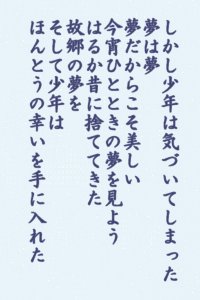 しかし少年は気づいてしまった
夢は夢
夢だからこそ美しい
今宵ひとときの夢を見よう
はるか昔に捨ててきた
故郷の夢を
そして少年は
ほんとうの幸いを手に入れた